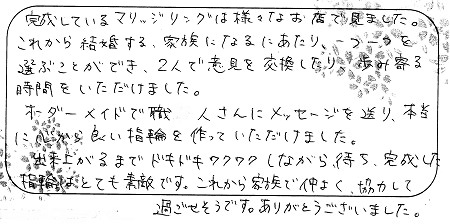 完成しているマリッジリングは様々なお店で見ました。
これから結婚する、家族になるにあたり、一つ一つを
選ぶことができ、2人で意見を交換したり、歩み寄る
時間をいただけました。
オーダーメイドで職人さんにメッセージを送り、本当
に心から良い指輪を作っていただけました。
出来上がるまでドキドキワクワクしながら待ち、完成した
指輪はとても素敵です。これから家族で仲よく、協力して
過ごせそうです。ありがとうございました。